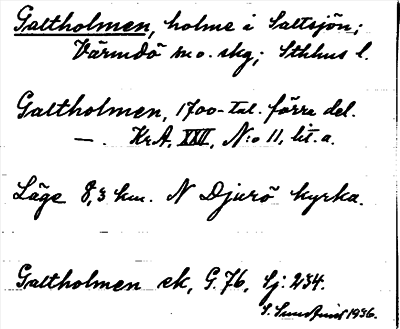 Galtholmen, holme i Saltsjön;
Värmdö m.o. skg; Sthlms l.
Galtholmen, 1700-tal. förra del.
—. Kr.A. XXII, N:o 11, lit. a.
Läge 8,3 km. N Djurö kyrka.
Galtholmen ek, G. 76, Sj. 234.
S. Sundqvist 1936.